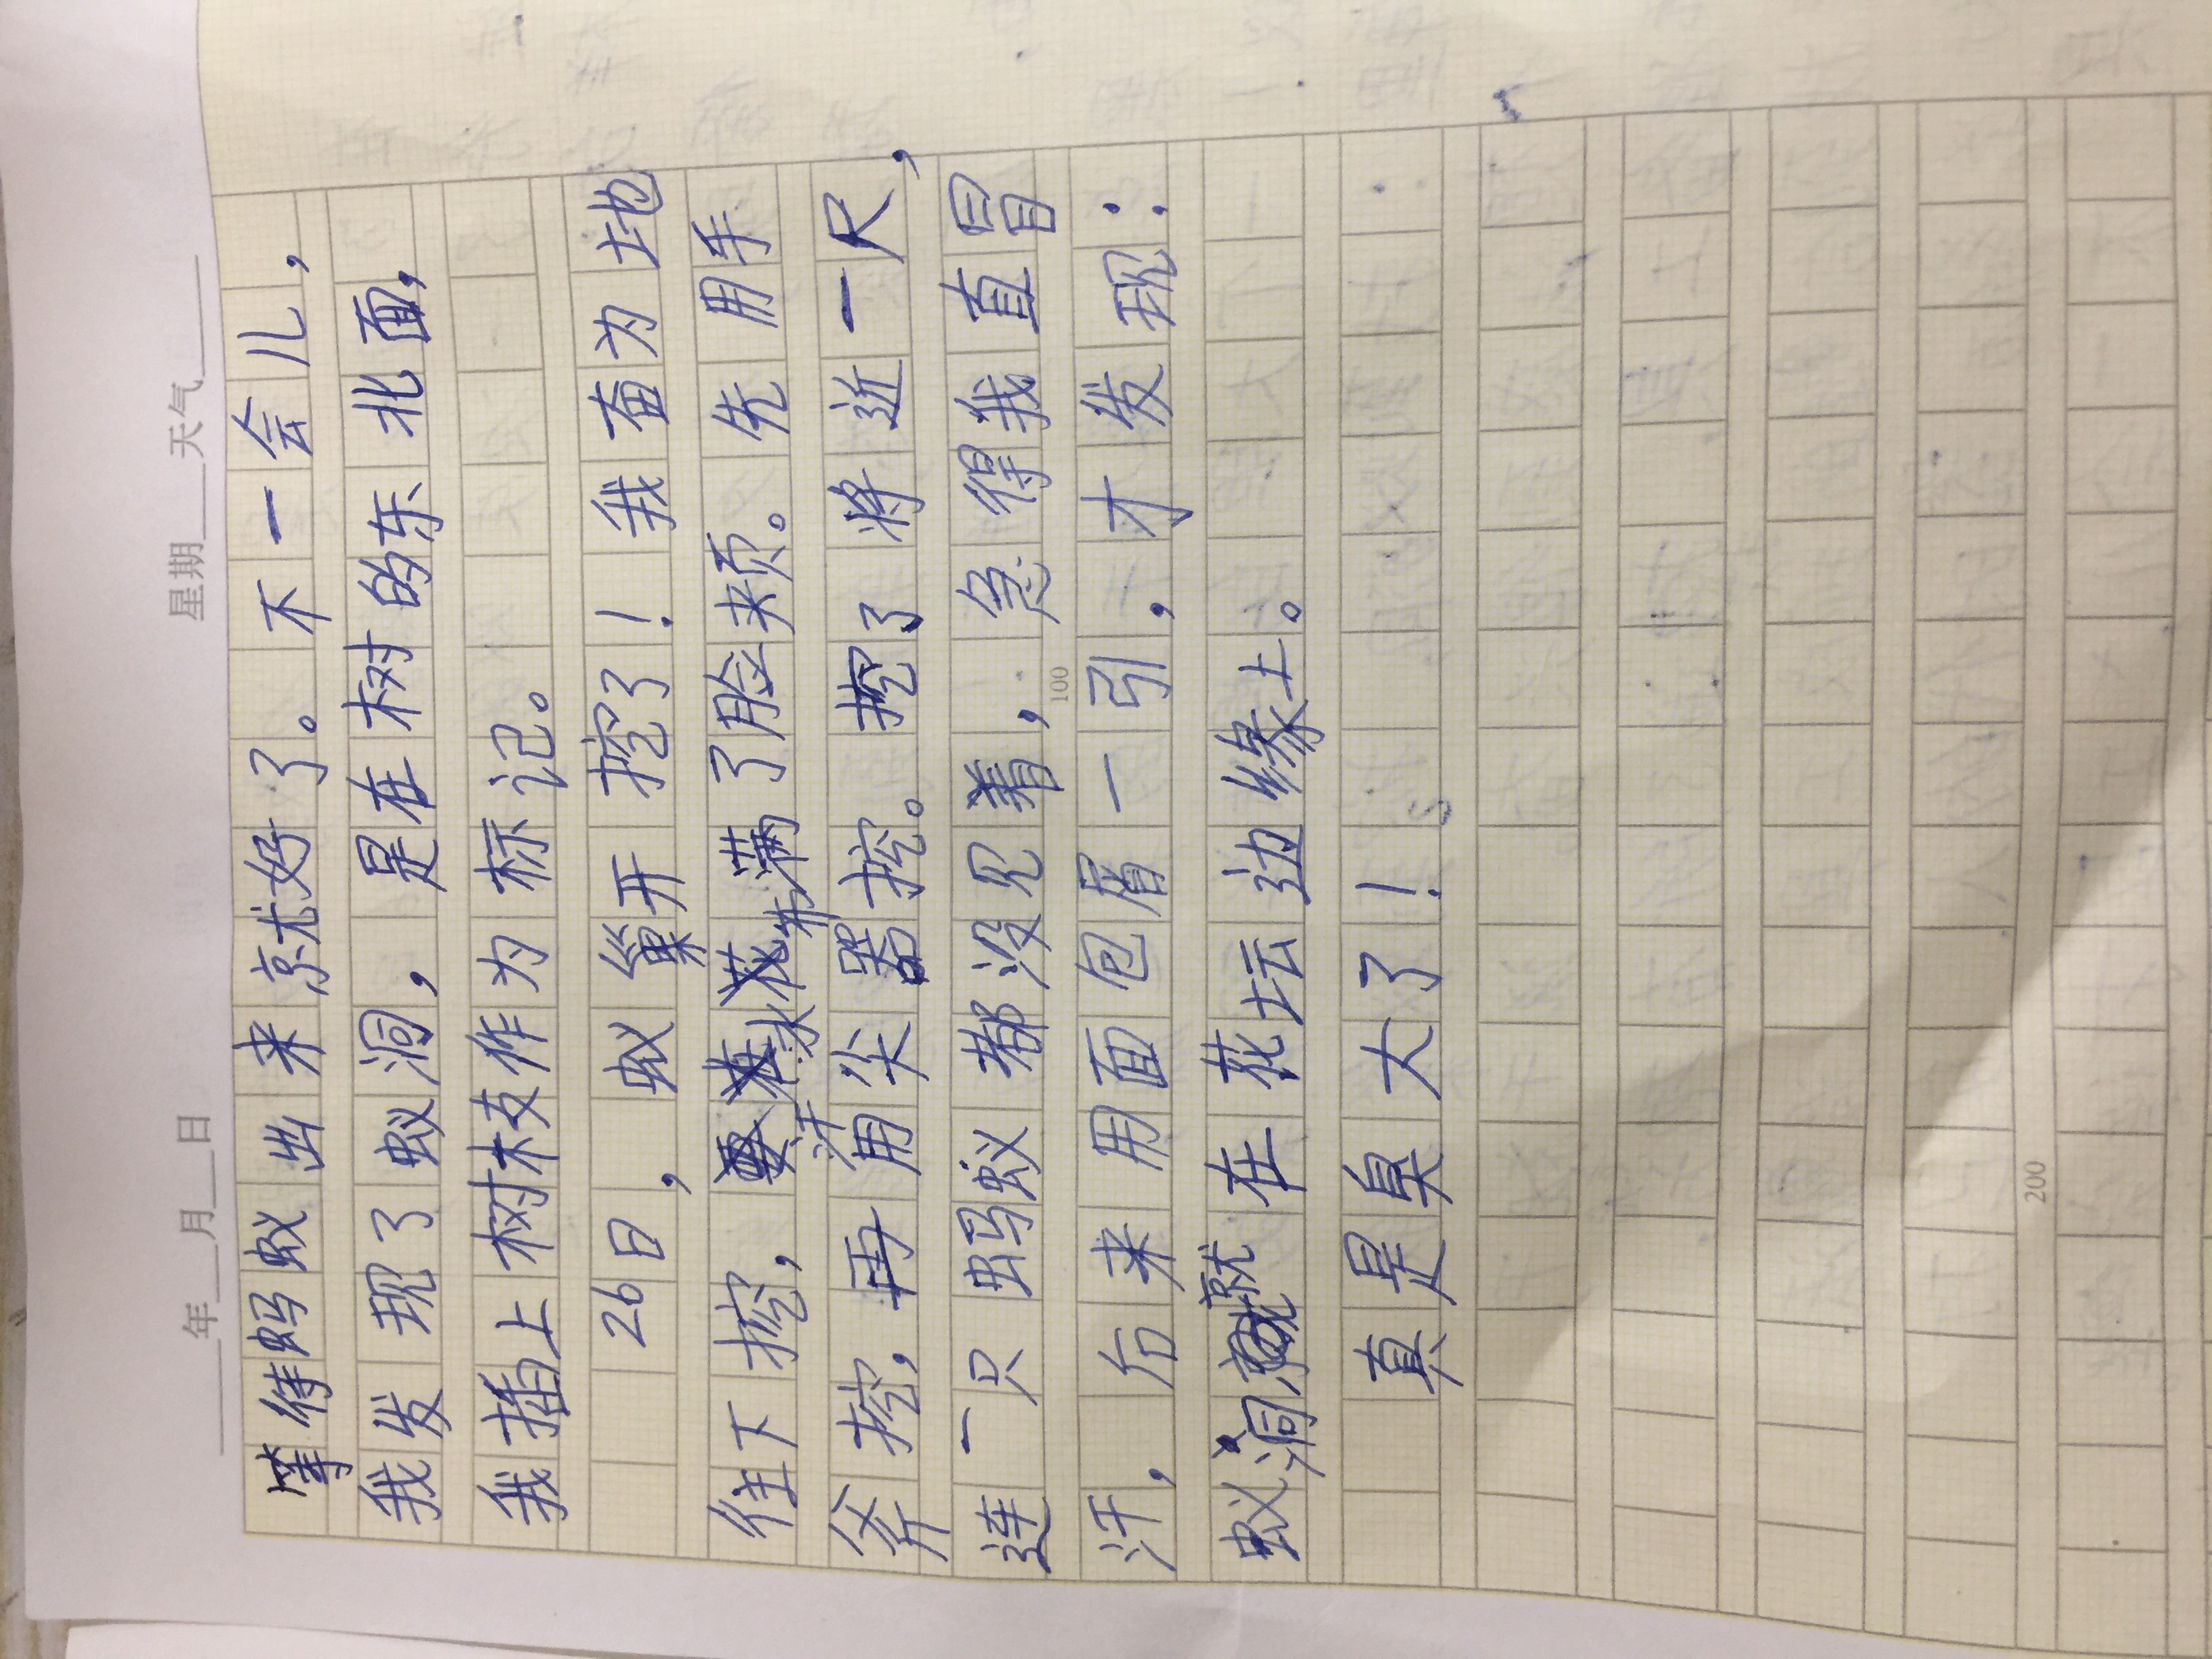 ____年__月__日 星期___天气____
等待蚂蚁出来就好了。不一会儿，
我发现了蚁洞，是在树的东北面，
我插上树枝作为标记。
26日，蚁巢开挖了！我奋为地
往下挖，汗水沸满了脸夹页。先用手
斧挖，再用尖器挖。挖了将近一尺，
连一只蚂蚁都没见着，急得我直冒
100
汗，后来用面包屑一引，才发现：
蚁洞就在花坛边缘土。
真是臭大了！
200